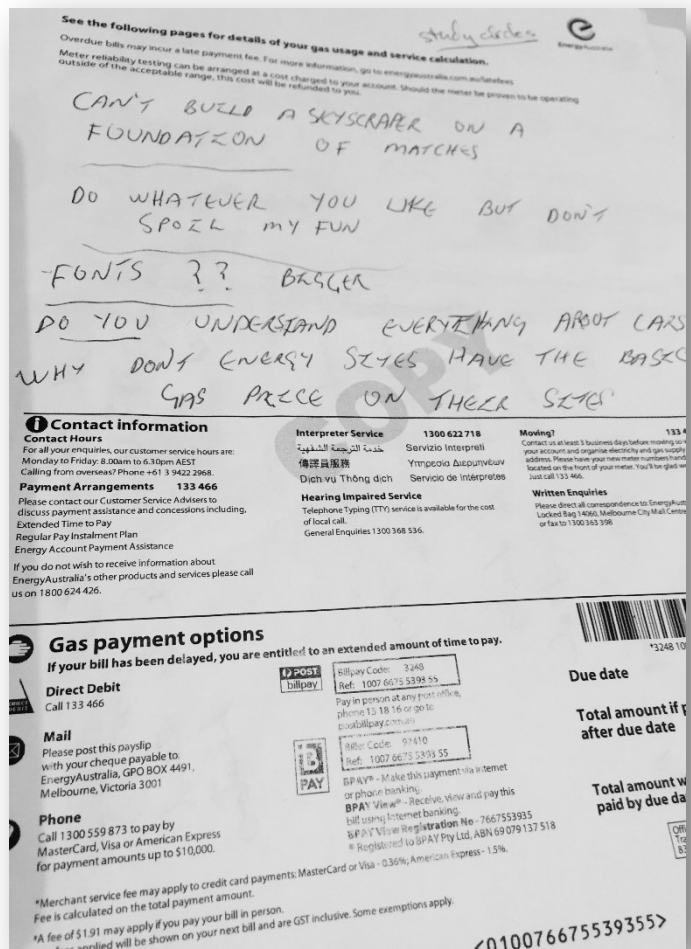 See the following pages for details of your gas usage and service calculation.
study circles
EnergyAustralia
Overdue bills may incur a late payment fee. For more information, go to energyaustralia.com.au/latefees
Meter reliability testing can be arranged at a cost charged to your account. Should the meter be proven to be operating
outside of the acceptable range, this cost will be refunded to you.
CAN'T BUILD A SKYSCRAPER ON A
FOUNDATION OF MATCHES
DO WHATEVER YOU LIKE BUT DON'T
SPOIL MY FUN
FONTS ?? BIGGER
DO YOU UNDERSTAND EVERYTHING ABOUT CARS
WHY DONT ENERGY SITES HAVE THE BASIC
GAS PRICE ON THEIR SITES
COPY
Contact information
Contact Hours
For all your enquiries, our customer service hours are:
Monday to Friday: 8.00am to 6.30pm AEST
Calling from overseas? Phone +61 3 9422 2968.
Payment Arrangements 133 466
Please contact our Customer Service Advisers to
discuss payment assistance and concessions including,
Extended Time to Pay
Regular Pay Instalment Plan
Energy Account Payment Assistance
If you do not wish to receive information about
EnergyAustralia's other products and services please call
us on 1800 624 426.
Interpreter Service 1300 622 718
خدمة الترجمة الشفهية Servizio Interpreti
傳譯員服務 Υπηρεσία Διερμηνέων
Dịch vụ Thông dịch Servicio de intérpretes
Hearing Impaired Service
Telephone Typing (TTY) service is available for the cost
of local call.
General Enquiries 1300 368 536.
Moving? 133 4
Contact us at least 3 business days before moving so
your account and organise electricity and gas supply
address. Please have your new meter numbers
located on the front of your meter. You'll be glad
Just call 133 466.
Written Enquiries
Please direct all correspondence to: EnergyAust
Locked Bag 14060, Melbourne City Mail Centre
or fax to 1300 363 398
Gas payment options
If your bill has been delayed, you are entitled to an extended amount of time to pay.
Direct Debit
Call 133 466
Mail
Please post this payslip
with your cheque payable to:
EnergyAustralia, GPO BOX 4491,
Melbourne, Victoria 3001
Phone
Call 1300 559 873 to pay by
MasterCard, Visa or American Express
for payment amounts up to $10,000.
POST
billpay
Billpay Code: 3248
Ref: 1007 6675 5393 55
Pay in person at any post office,
phone 13 18 16 or go to
postbillpay.com.au
B
PAY
Biller Code: 97410
Ref: 1007 6675 5393 55
BPAY® - Make this payment via internet
or phone banking.
BPAY View® - Receive, view and pay this
bill using internet banking.
BPAY View Registration No - 7667553935
® Registered to BPAY Pty Ltd, ABN 69 079 137 518
*3248 10
Due date
Total amount if p
after due date
Total amount w
paid by due da
Offi
Tra
83
*Merchant service fee may apply to credit card payments: MasterCard or Visa - 0.36%; American Express - 1.5%.
Fee is calculated on the total payment amount.
^A fee of $1.91 may apply if you pay your bill in person.
applied will be shown on your next bill and are GST inclusive. Some exemptions apply.
<010076675539355>